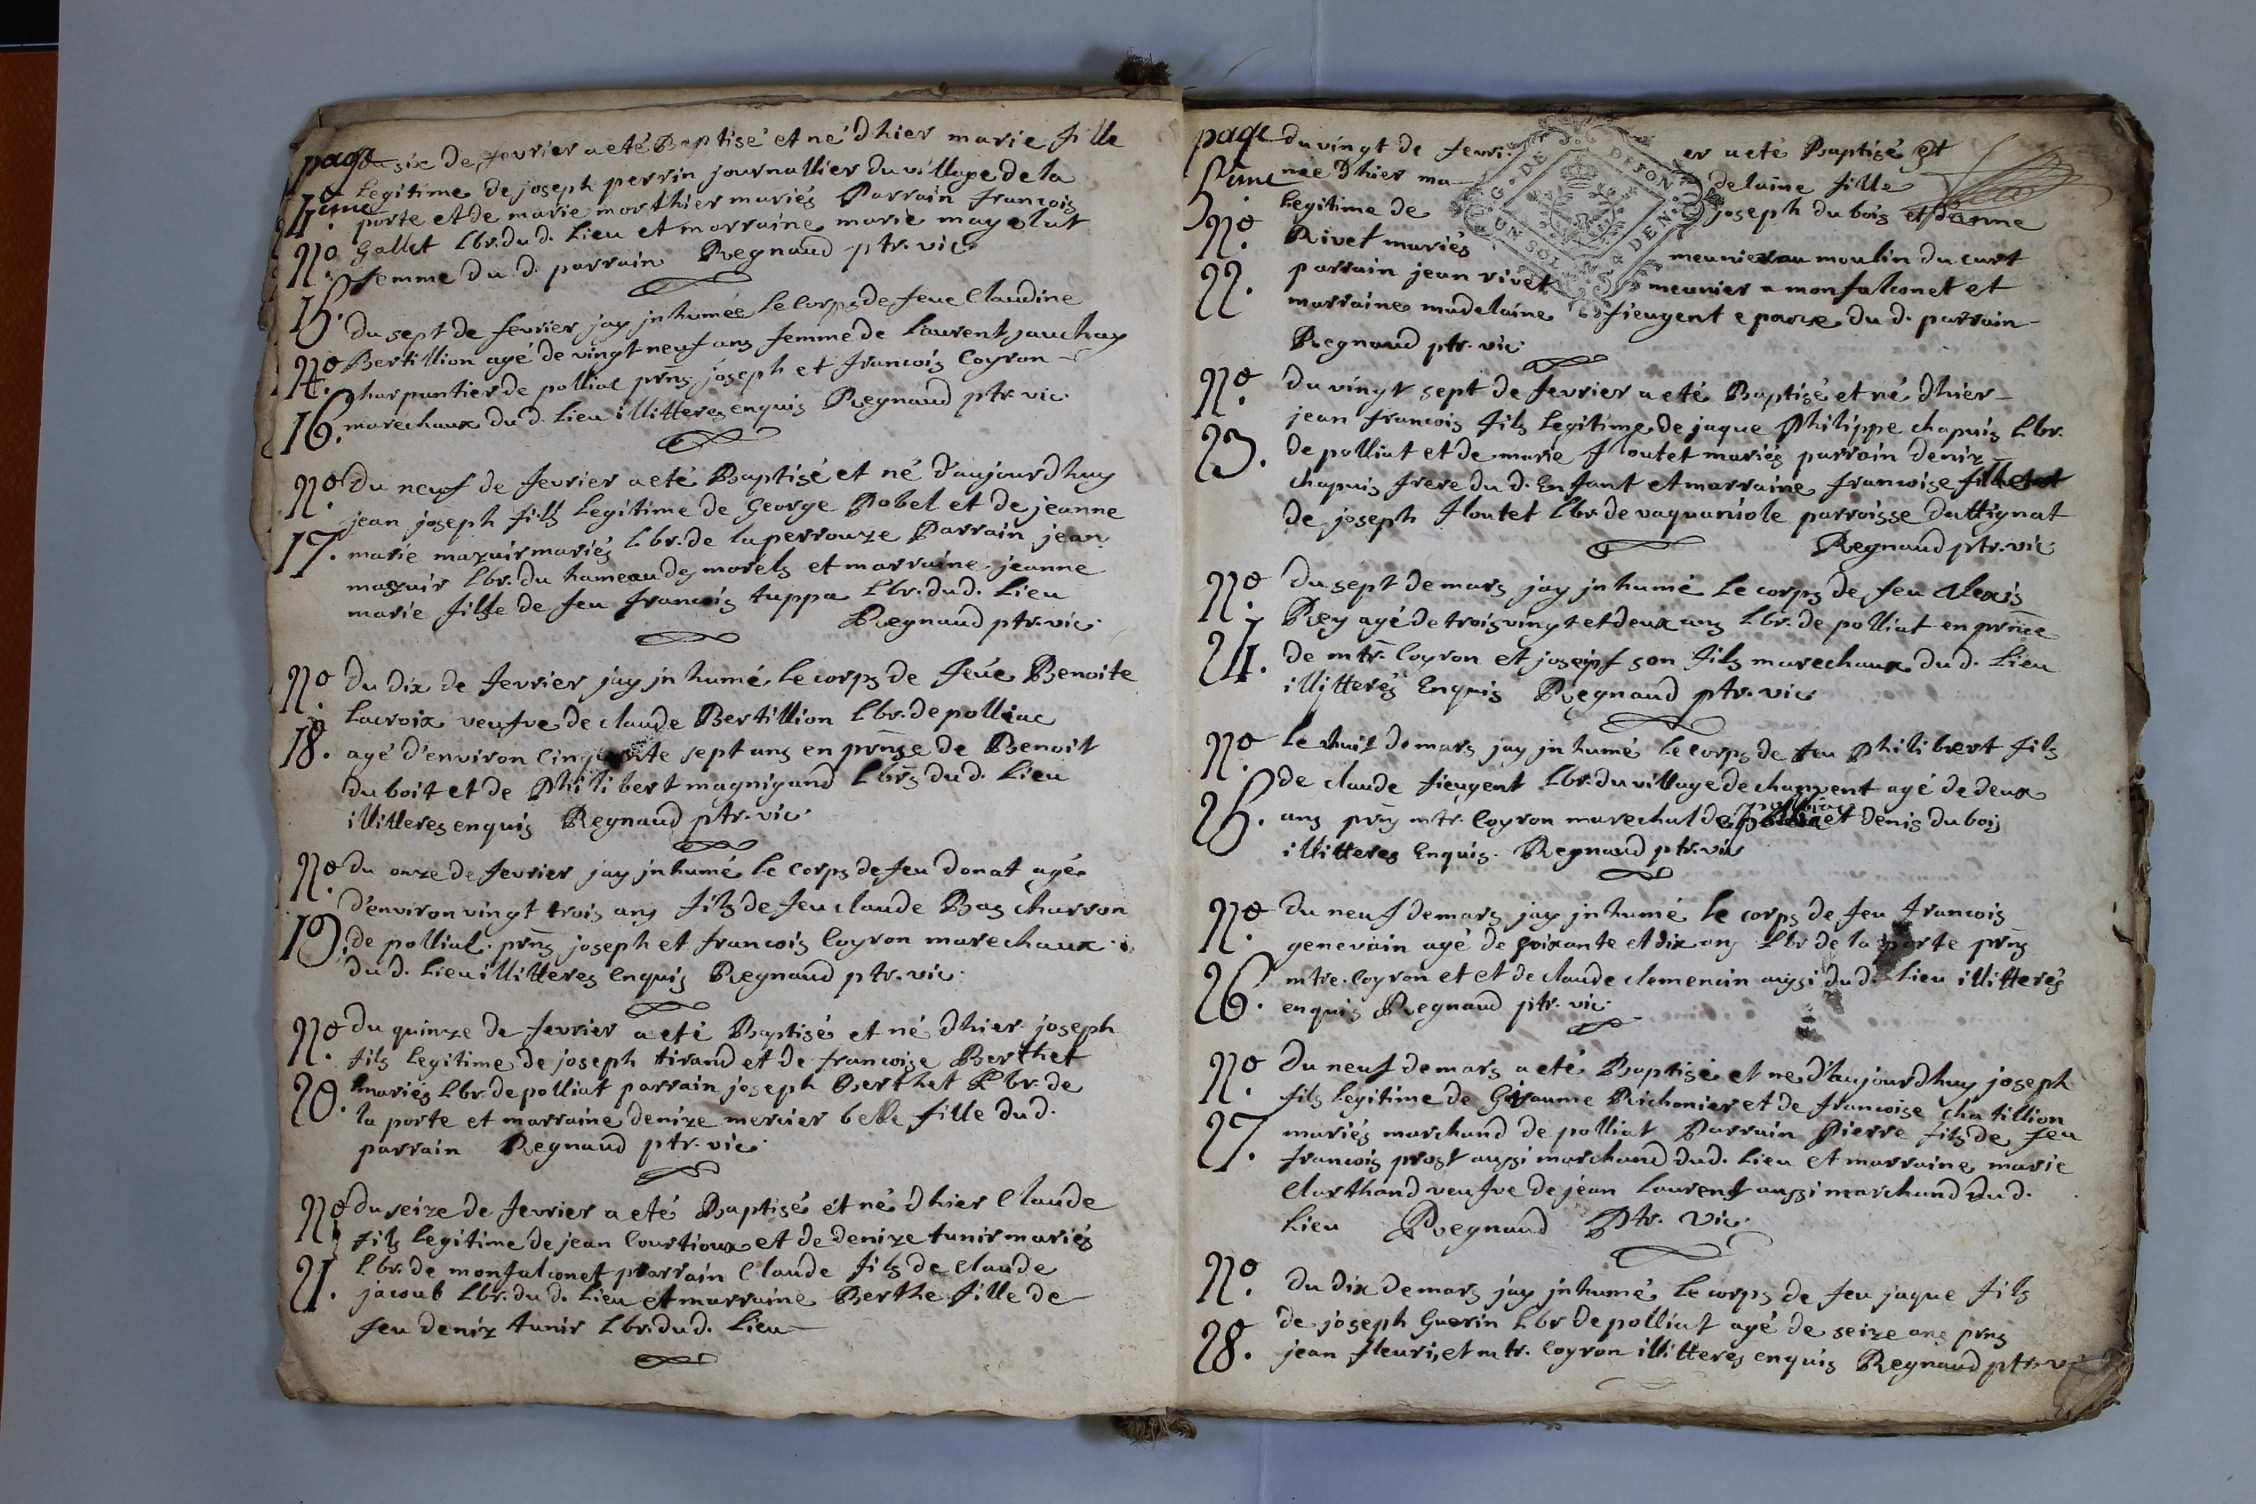 page du six de fevrier a eté Baptisé et né d'hier marie fille
4eme legitime de joseph perrin journallier du village de la
porte et de marie morthier mariés Parrain françois
No Gallet Lbr. du d. Lieu et marraine marie mayolat
15. femme du d. parrain Regnaud ptr. vic.
du sept de fevrier jay jnhumée le Corps de feue Claudine
No Bertillion agé de vingt neuf ans femme de Laurent jauchay
16. charpantier de polliac pr̃ns joseph et francois Coyron
marechaux du d. Lieu illitteres enquis Regnaud ptr. vic.
No du neuf de fevrier a eté Baptisé et né d'aujourdhuy
17. jean joseph fils legitime de George Pobel et de jeanne
marie mazuir mariés Lbr. de la perrouze Parrain jean
mazuir Lbr. du hameau des morels et marraine jeanne
marie fille de feu francois tuppa Lbr. du d. Lieu
Regnaud ptr. vic.
No du dix de fevrier jay jnhumé le corps de feüe Benoite
18. Lacroix veufve de claude Bertillion Lbr. de polliac
agé d'environ Cinquante sept ans en pr̃nse de Benoit
duboit et de Philibert magnigand Lbr̃s du d. Lieu
illitteres enquis Regnaud ptr. vic.
No du onze de fevrier jay jnhumé le Corps de feu donat agé
19. d'environ vingt trois ans fils de feu claude Bas charron
de polliat. pr̃ns joseph et francois Coyron marechaux
du d. Lieu illitteres enquis Regnaud ptr. vic.
No du quinze de fevrier a eté Baptisé et né d'hier joseph
fils legitime de joseph tirand et de francoise Berthet
20. mariés Lbr. de polliat parrain joseph Berthet Lbr. de
la porte et marraine denize mercier belle fille du d.
parrain Regnaud ptr. vic.
No du seize de fevrier a eté Baptisé et né d'hier Claude
fils legitime de jean Courtioux et de denize tunir mariés
21. Lbr. de monfalconet parrain Claude fils de claude
jacoub Lbr. du d. Lieu et marraine Berthe fille de
feu deniz tunir Lbr. du d. Lieu
page du vingt de fevrier a eté Baptisé et
5eme née d'hier madelaine fille
legitime de joseph du bois et danne
No Rivet mariés meunier au moulin du curt
22. parrain jean rivet meunier a monfalconet et
marraine madelaine fieugent epouze du d. parrain
Regnaud ptr. vic.
G. DE DIJON
UN SOL 4 DEN.
No du vingt sept de fevrier a eté Baptisé et né d'hier
jean francois fils legitime de jaque Philippe chapuis Lbr.
23. de polliat et de marie floutet mariés parrain deniz
chapuis frere du d. Enfant et marraine francoise fille
de joseph floutet Lbr. de vaquaniole parroisse dattignat
Regnaud ptr. vic.
No du sept de mars jay jnhumé le corps de feu Alexis
Rey agé de trois vingt et deux ans Lbr. de polliat en pr̃nce
24. de mtr. Coyron et joseipf son fils marechaux du d. Lieu
illitterés Enquis Regnaud ptr. vic.
No le huit de mars jay jnhumé le corps de feu Philibert fils
de claude fieugent Lbr. du village de champent agé de deux
25. ans pr̃ns mtr. Coyron marechal de polliac et denis dubois
illitteres Enquis. Regnaud ptr. vic
No du neuf de mars jay jnhumé le corps de feu francois
genevain agé de soixante et dix ans Lbr de la porte pr̃ns
26. mtre. Coyron et et de claude clemencin aussi du d. Lieu illitterés
enquis Regnaud ptr. vic.
No du neuf de mars a eté Baptisé et né d'aujourdhuy joseph
fils legitime de Giraume Richonier et de francoise chatillion
27. mariés marchand de polliat Parrain Pierre fils de feu
francois prost aussi marchand du d. Lieu et marraine marie
Clarthand veufve de jean Laurent aussi marchand du d.
Lieu Regnaud Ptr. Vic.
No du dix de mars jay jnhumé le corps de feu jaque fils
de joseph Guerin Lbr de polliat agé de seize ans pr̃ns
28. jean fleuri, et mtr. Coyron illitteres enquis Regnaud ptr. vic